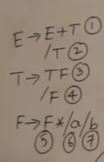 E→E+T ①
/T ②
T→TF ③
/F ④
F→F*/a/b
⑤ ⑥ ⑦